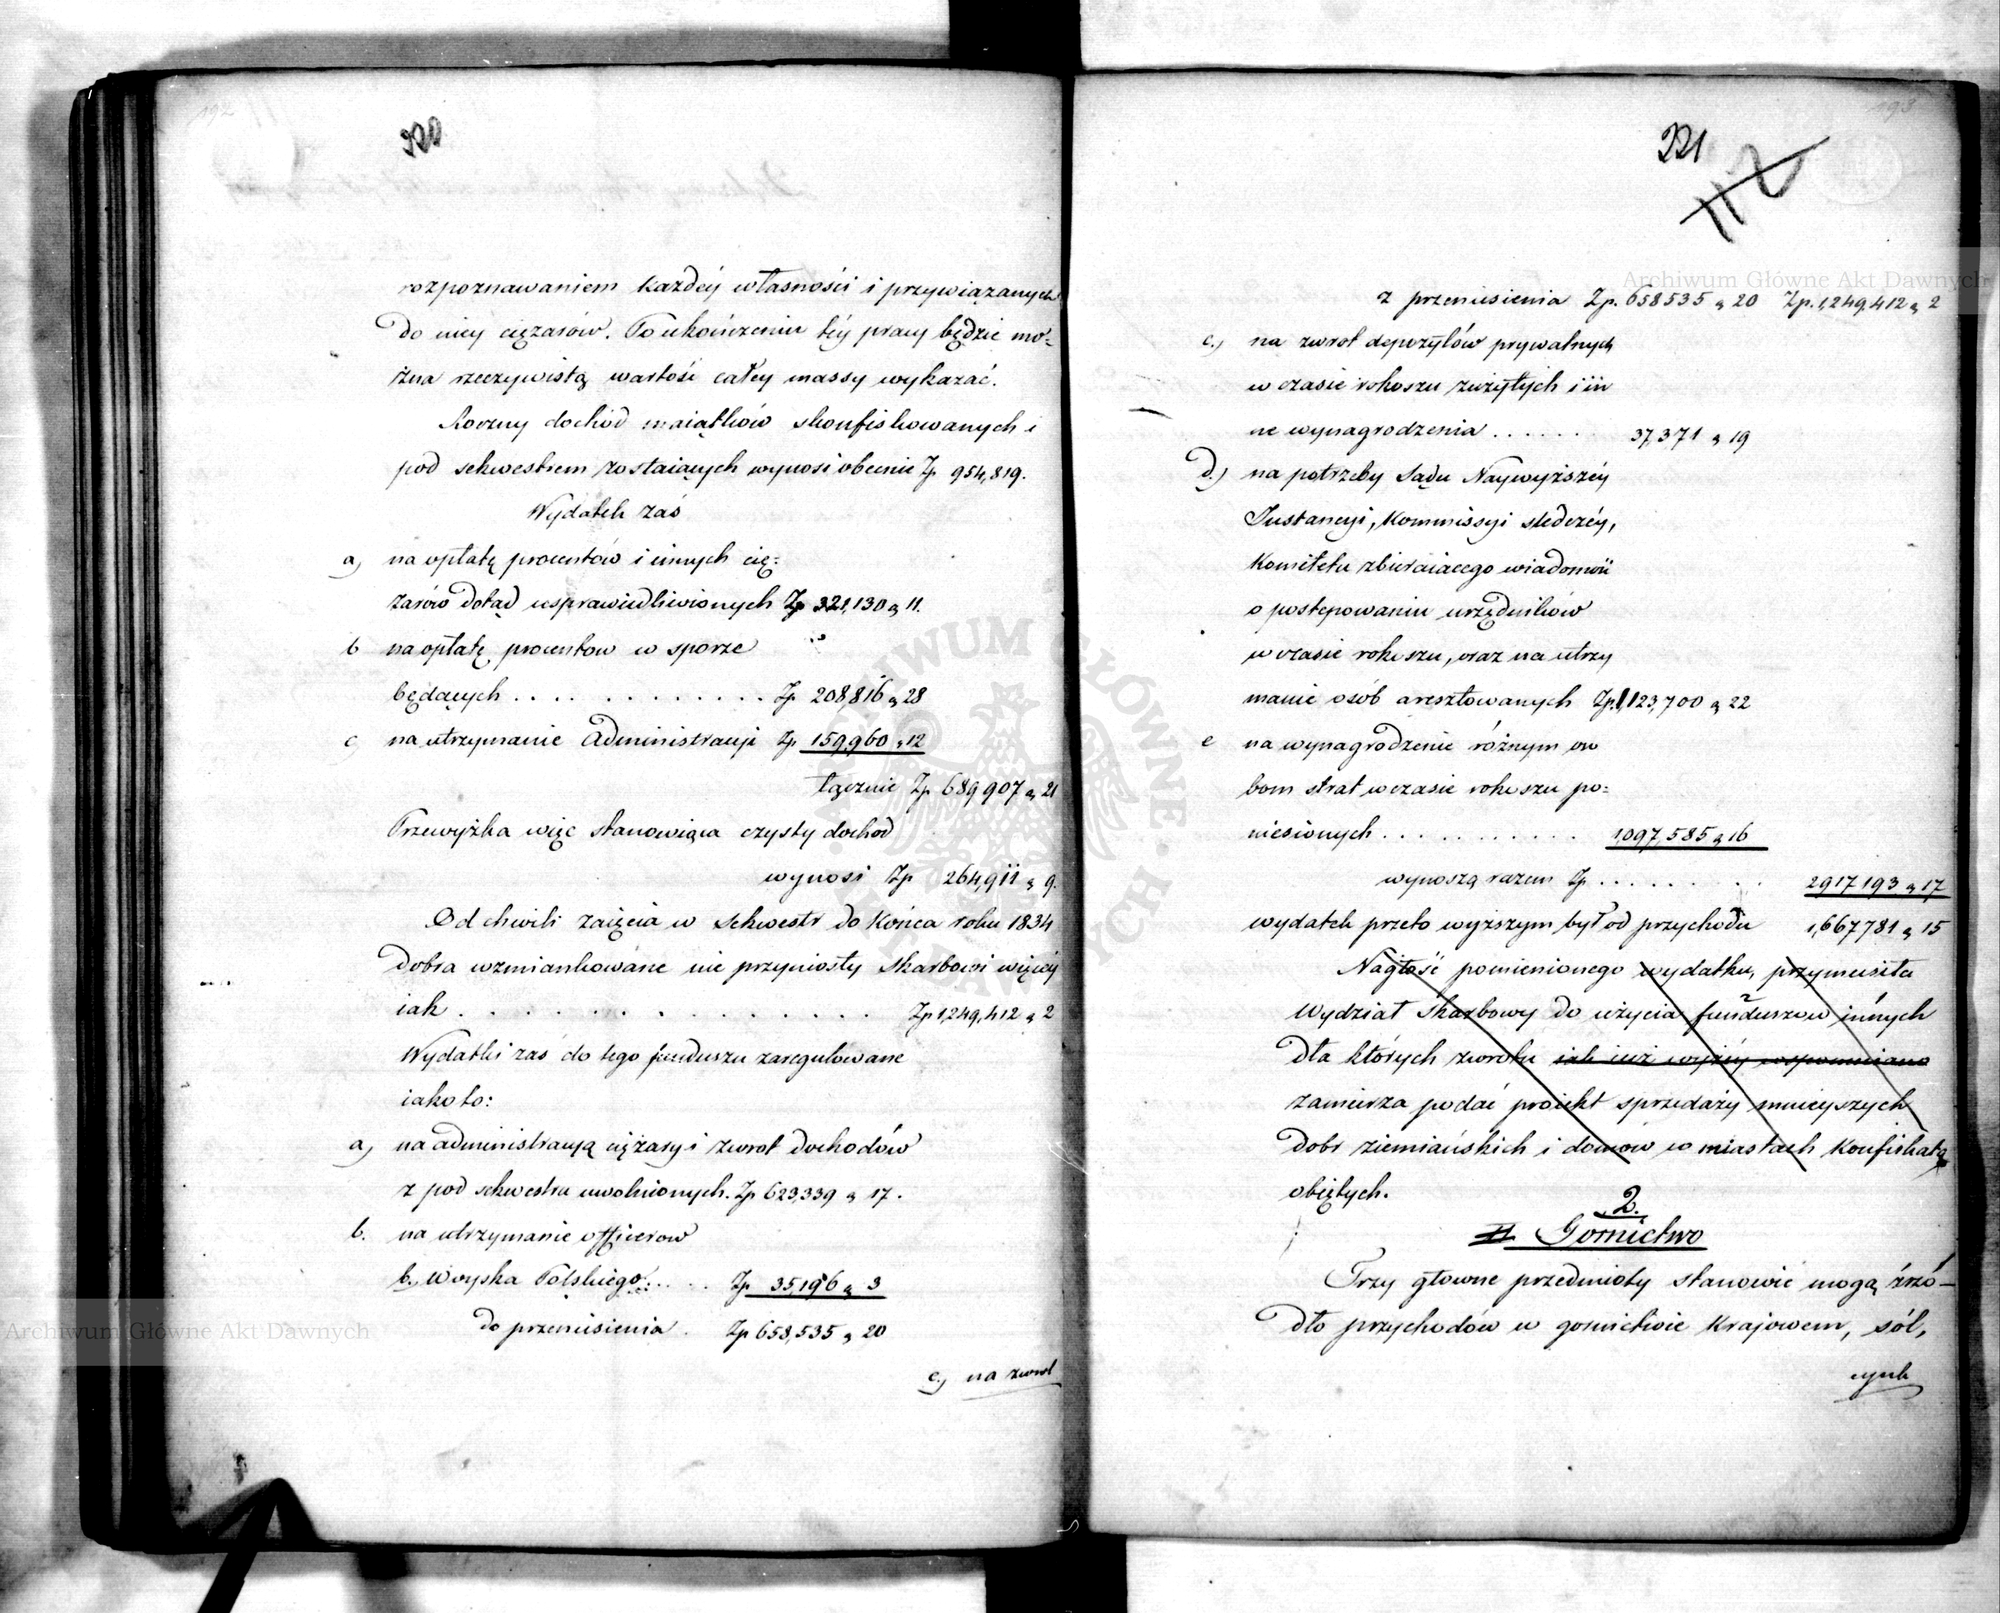 192
220
rozpoznawaniem każdéy własności i przywiązanych
do niey ciężarów. Po ukończeniu téy pracy będzie mo=
żna rzeczywistą wartość całey massy wykazać.
Roczny dochód maiątków skonfiskowanych i
pod sekwestrem zostaiących wynosi obecnie Zp 954,819.
Wydatek zaś
a) na opłatę procentów i innych cię=
żarów dotąd usprawiedliwionych Zp 321,130 g 11.
b na opłatę procentow w sporze
będących . . . . . . . . . . . . . Zp 208,816 g 28
c na utrzymanie Administracyi Zp 159,960 g 12
łącznie Zp 689 907 g 21
Przewyżka więc stanowiąca czysty dochod
wynosi Zp 264,911 g 9.
Od chwili zaięcia w Sekwestr do końca roku 1834
dobra wzmiankowane nie przyniosły Skarbowi więcéy
iak . . . . . . . . . . . . . Zp 1,249,412 g 2
Wydatki zaś do tego funduszu zaregulowane
iako to:
a) na administracyą ciężary i zwrot dochodów
z pod sekwestru uwolnionych. Zp 623,339 g 17.
b. na utrzymanie officerow
b. Woyska Polskiego . . . . Zp 35,196 g 3
do przeniesienia . Zp 658,535 g 20
c) na zwrot
193
221
112
Archiwum Główne Akt Dawnych
z przeniesienia Zp. 658535 g 20 Zp. 1,249,412 g 2
c.) na zwrot depozytów prywatnych
w czasie rokoszu zużytych i in
ne wynagrodzenia . . . . . . 37,371 g 19
d.) na potrzeby Sądu Naywyższéy
Instancyi, Kommissyi śledczéy,
Komitetu zbieraiącego wiadomości
o postępowaniu urzędników
w czasie rokoszu, oraz na utrzy
manie osób aresztowanych Zp. 1,123,700 g 22
e na wynagrodzenie różnym oso
bom strat w czasie rokoszu po=
niesionych . . . . . . . . . . . 1,097,585 g 16
wynoszą razem Zp . . . . . . . . . 2917 193 g 17
wydatek przeto wyższym był od przychodu 1,667781 g 15
Nagłość pomienionego wydatku, przymusiła
Wydział Skarbowy do użycia funduszow innych
dla których zwrotu iak iuż wyżéy wspomniano
zamierza podać proiekt sprzedaży mnieyszych
dobr ziemiańskich i domów w miastach Konfiskatą
obiętych.
2.
Gornictwo
Trzy głowne przedmioty stanowić mogą źrzó-
dło przychodów w gornictwie Krajowem, sól,
cynk
Archiwum Główne Akt Dawnych
ARCHIWUM GŁÓWNE AKT DAWNYCH